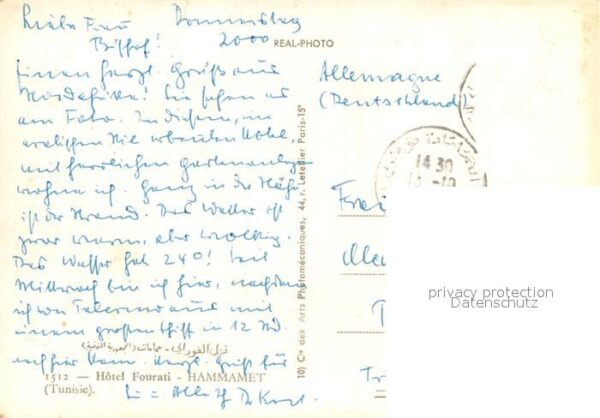 Liebe Frau Donnerstag
Bischof! 2000
einen herzl. Gruß aus
Nordafrika! Sie sehen es
am Foto. In diesem, im
arabischen Stil erbauten Hotel,
mit herrlichen Gartenanlagen
wohne ich. Ganz in der Nähe
ist der Strand. Das Wetter ist
zwar warm, aber wolkig.
Das Wasser hat 24°! Seit
Mittwoch bin ich hier, nachdem
ich von Palermo aus mit
einem großen Schiff in 12 Std.
hier kam. Herzl. Grüße für
Alle Ihr
1512 — Hôtel Fourati - HAMMAMET
(Tunisie).
10) Cie des Arts Photomécaniques, 44, r. Letellier Paris-15e
REAL-PHOTO
Allemagne
(Deutschland)
14 30
privacy protection
Datenschutz